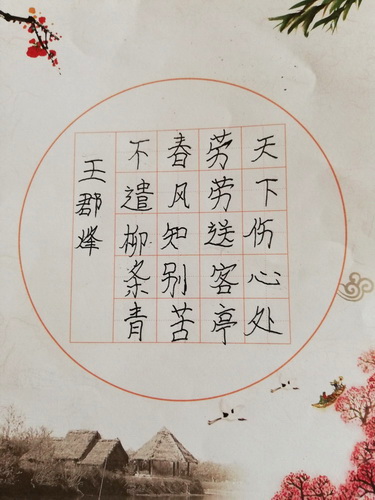 天下伤心处
劳劳送客亭
春风知别苦
不遣柳条青
王郡烽